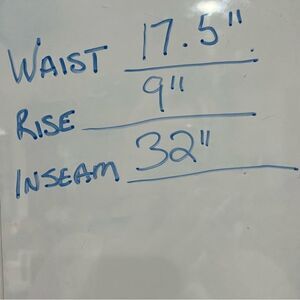 WAIST 17.5"
RISE 9"
INSEAM 32"